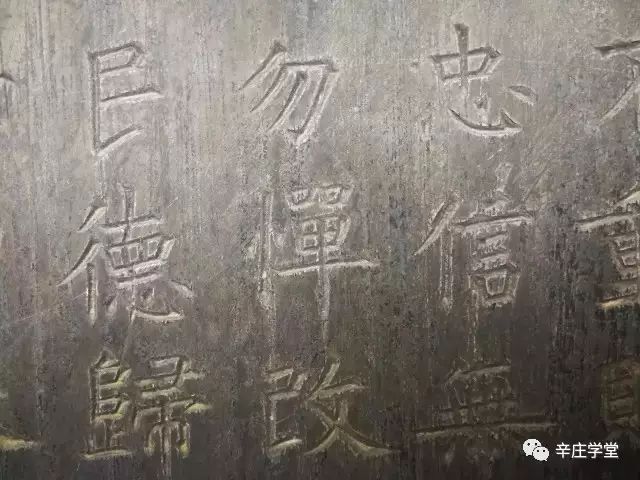 不重則
忠信無
勿憚改
民德歸
辛庄学堂